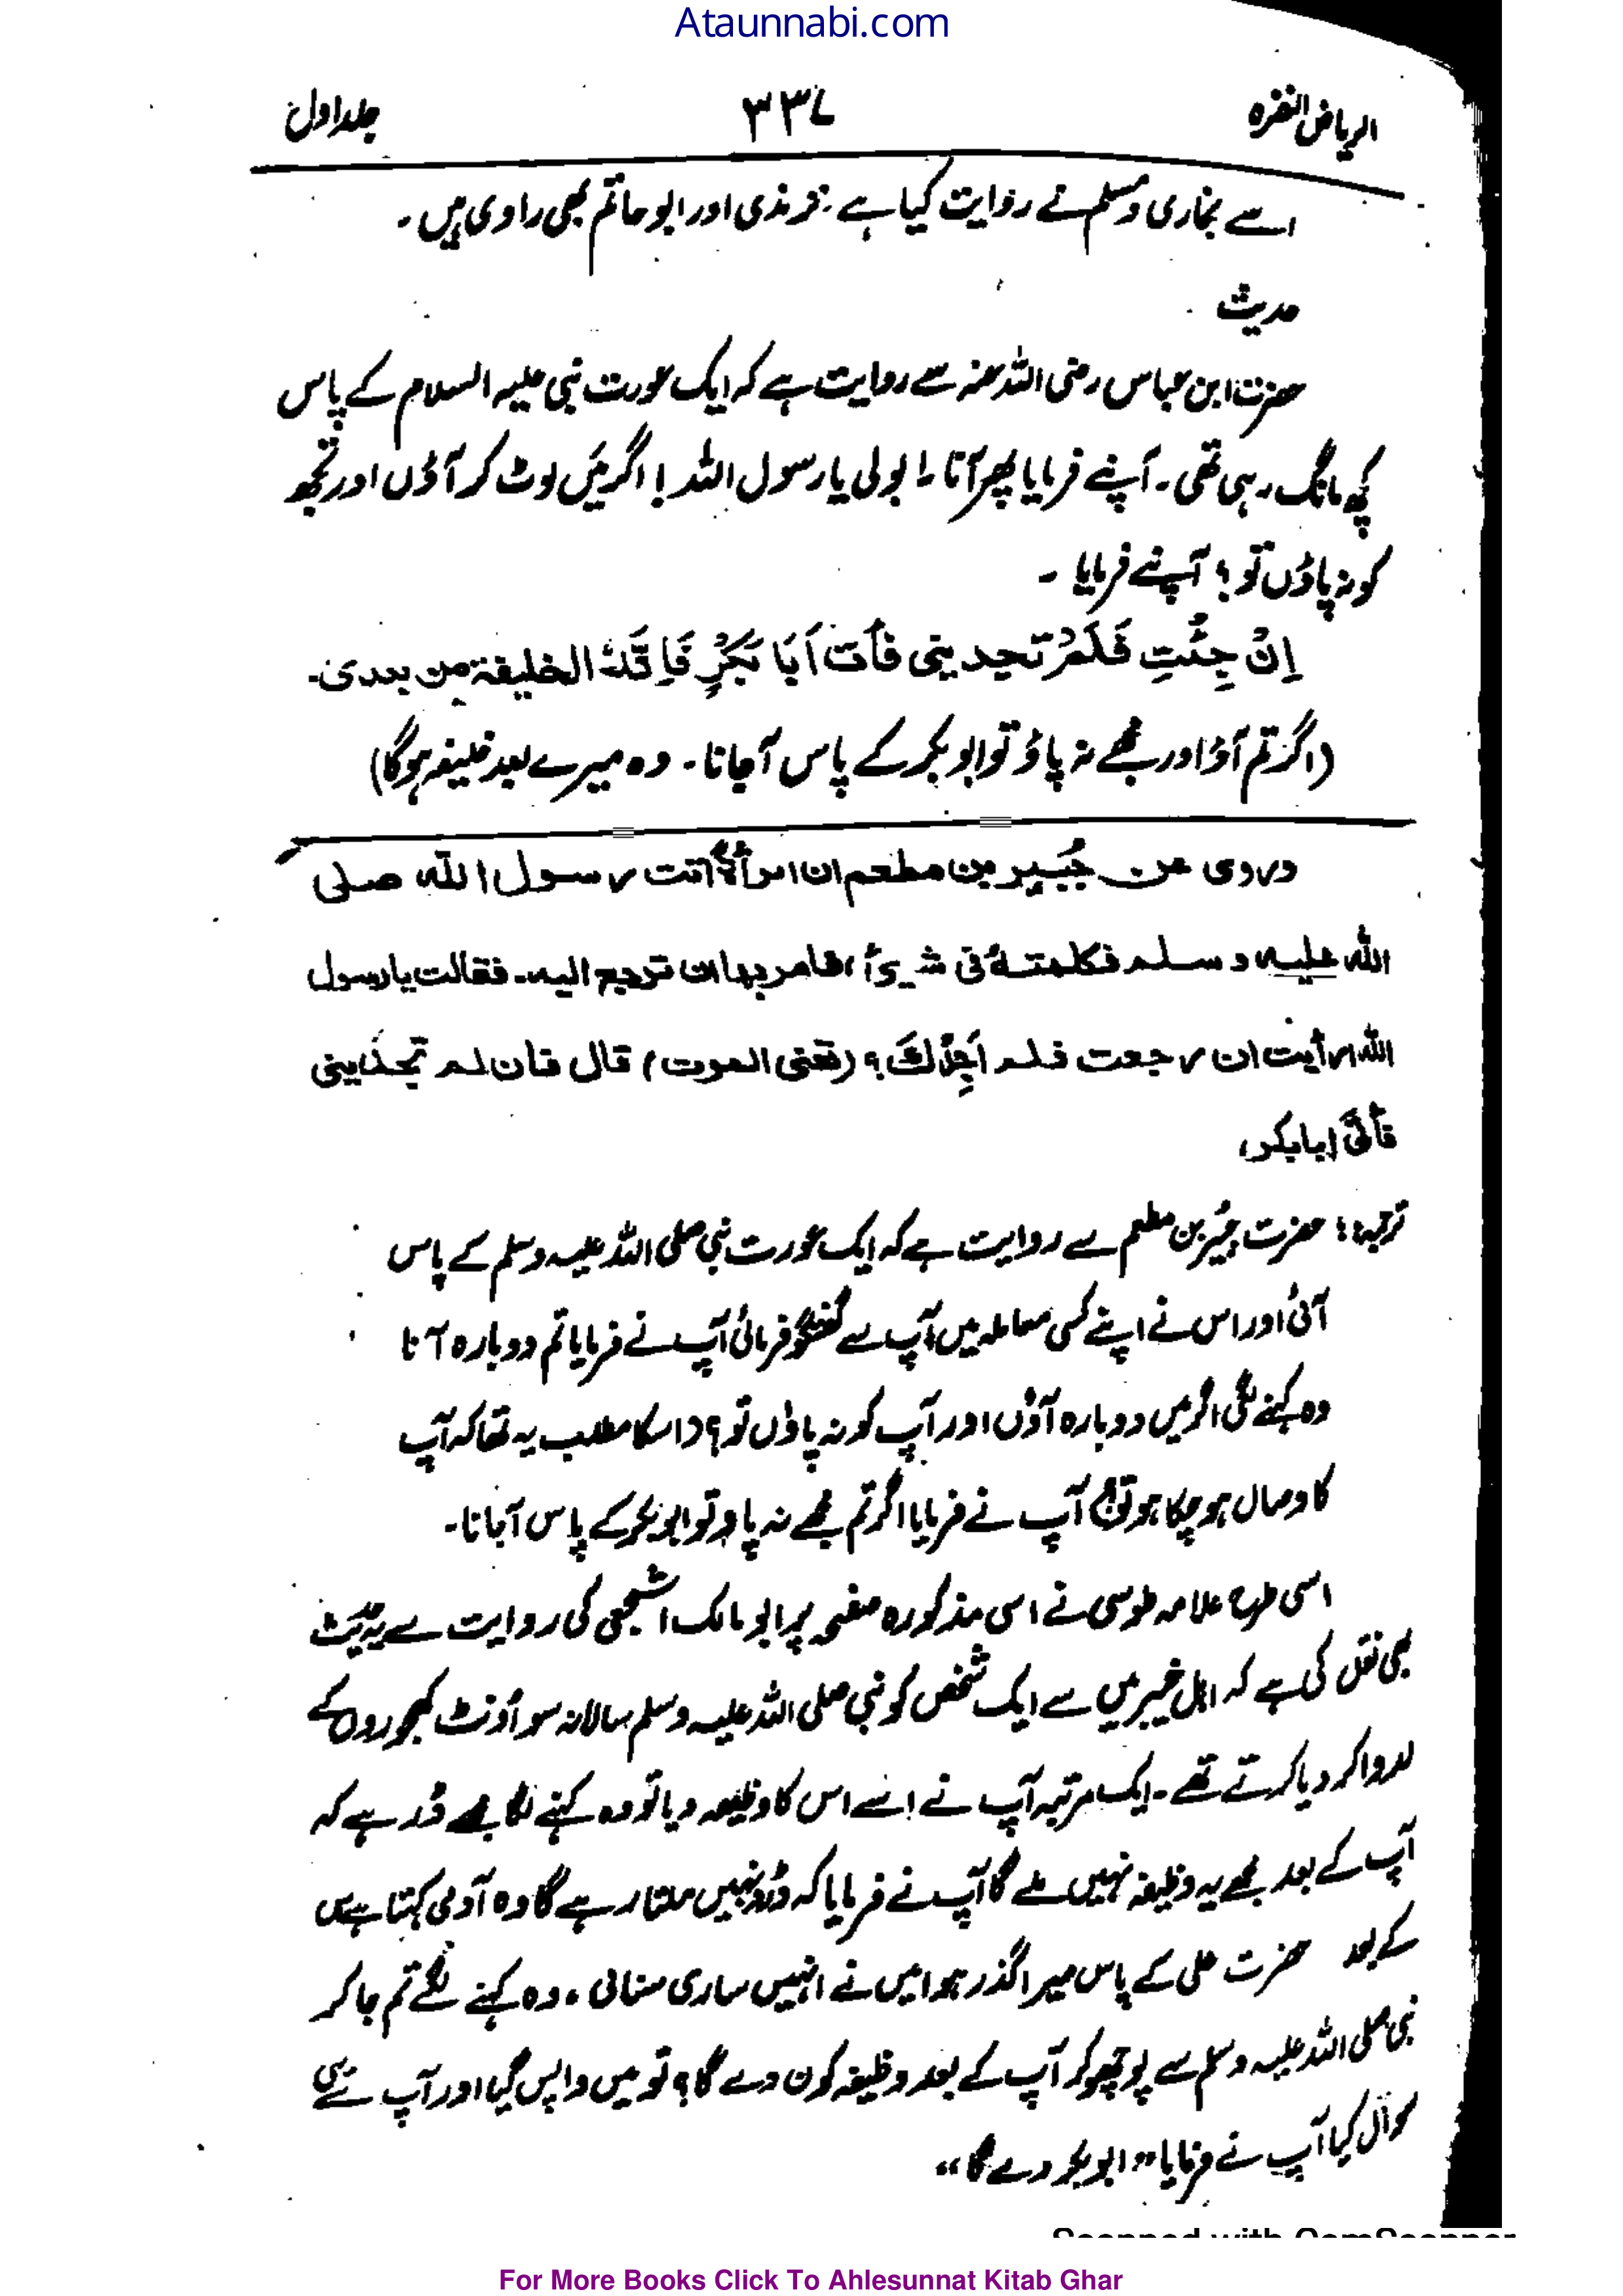 Ataunnabi.com
الریاض النضرہ ۳۳۷ جلد اول
اسے بخاری و مسلم نے روایت کیا ہے ۔ ترمذی اور ابو حاتم بھی راوی ہیں ۔
حدیث
حضرت ابن عباس رضی اللہ عنہ سے روایت ہے کہ ایک عورت نبی علیہ السلام کے پاس
کچھ مانگ رہی تھی ۔ آپ نے فرمایا پھر آنا ۔ بولی یا رسول اللہ ! اگر میَں لوٹ کر آؤں اور تجھ
کو نہ پاؤں تو ؟ آپ نے فرمایا ۔
اِنْ جِئْتِ فَلَمْ تجدینی فأت اَبَا بَکْرٍ فَاِنَّہٗ الخلیفۃ من بعدی ۔
(اگر تم آؤ اور مجھے نہ پاؤ تو ابو بکر کے پاس آجانا ۔ وہ میرے بعد خلیفہ ہوگا)
وروی عن جُبَیر بن مطعم ان امرأۃً اتت رسول اللہ صلی
اللہ علیہ وسلم فکلمتہٗ فی شیئ ، فامر بہا ان ترجع الیہ ۔ فقالت یا رسول
اللہ ارأیت ان رجعت فلم اَجِدْکَ ؟ (تعنی الموت) قال فان لم تجدینی
فأتی ابابکر ،
ترجمہ : حضرت جبیر بن مطعم سے روایت ہے کہ ایک عورت نبی صلی اللہ علیہ وسلم کے پاس
آئی اور اس نے اپنے کسی معاملہ میں آپ سے گفتگو فرمائی آپ نے فرمایا تم دوبارہ آنا
وہ کہنے لگی اگر میں دوبارہ آؤں اور آپ کو نہ پاؤں تو ؟ (اس کا مطلب یہ تھا کہ آپ
کا وصال ہو چکا ہو تو) آپ نے فرمایا اگر تم مجھے نہ پاؤ تو ابو بکر کے پاس آجانا ۔
اسی طرح علامہ طوسی نے اسی مذکورہ صفحہ پر ابو مالک اشجعی کی روایت سے یہ حدیث
بھی نقل کی ہے کہ اہل خیبر میں سے ایک شخص کو نبی صلی اللہ علیہ وسلم سالانہ سو اُونٹ کھجوروں کے
لدوا کر دیا کرتے تھے ۔ ایک مرتبہ آپ نے اسے اس کا وظیفہ دیا تو وہ کہنے لگا مجھے ڈر ہے کہ
آپ کے بعد مجھے یہ وظیفہ نہیں ملے گا آپ نے فرمایا کہ ڈرو نہیں ملتا رہے گا وہ آدمی کہتا ہے اس
کے بعد حضرت علی کے پاس میرا گذر ہوا میں نے انہیں ساری سنائی ، وہ کہنے لگے تم جا کر
نبی صلی اللہ علیہ وسلم سے پوچھو کہ آپ کے بعد وظیفہ کون دے گا ؟ تو میں واپس گیا اور آپ سے یہی
سوال کیا آپ نے فرمایا ”ابو بکر دے گا“
Scanned with CamScanner
For More Books Click To Ahlesunnat Kitab Ghar